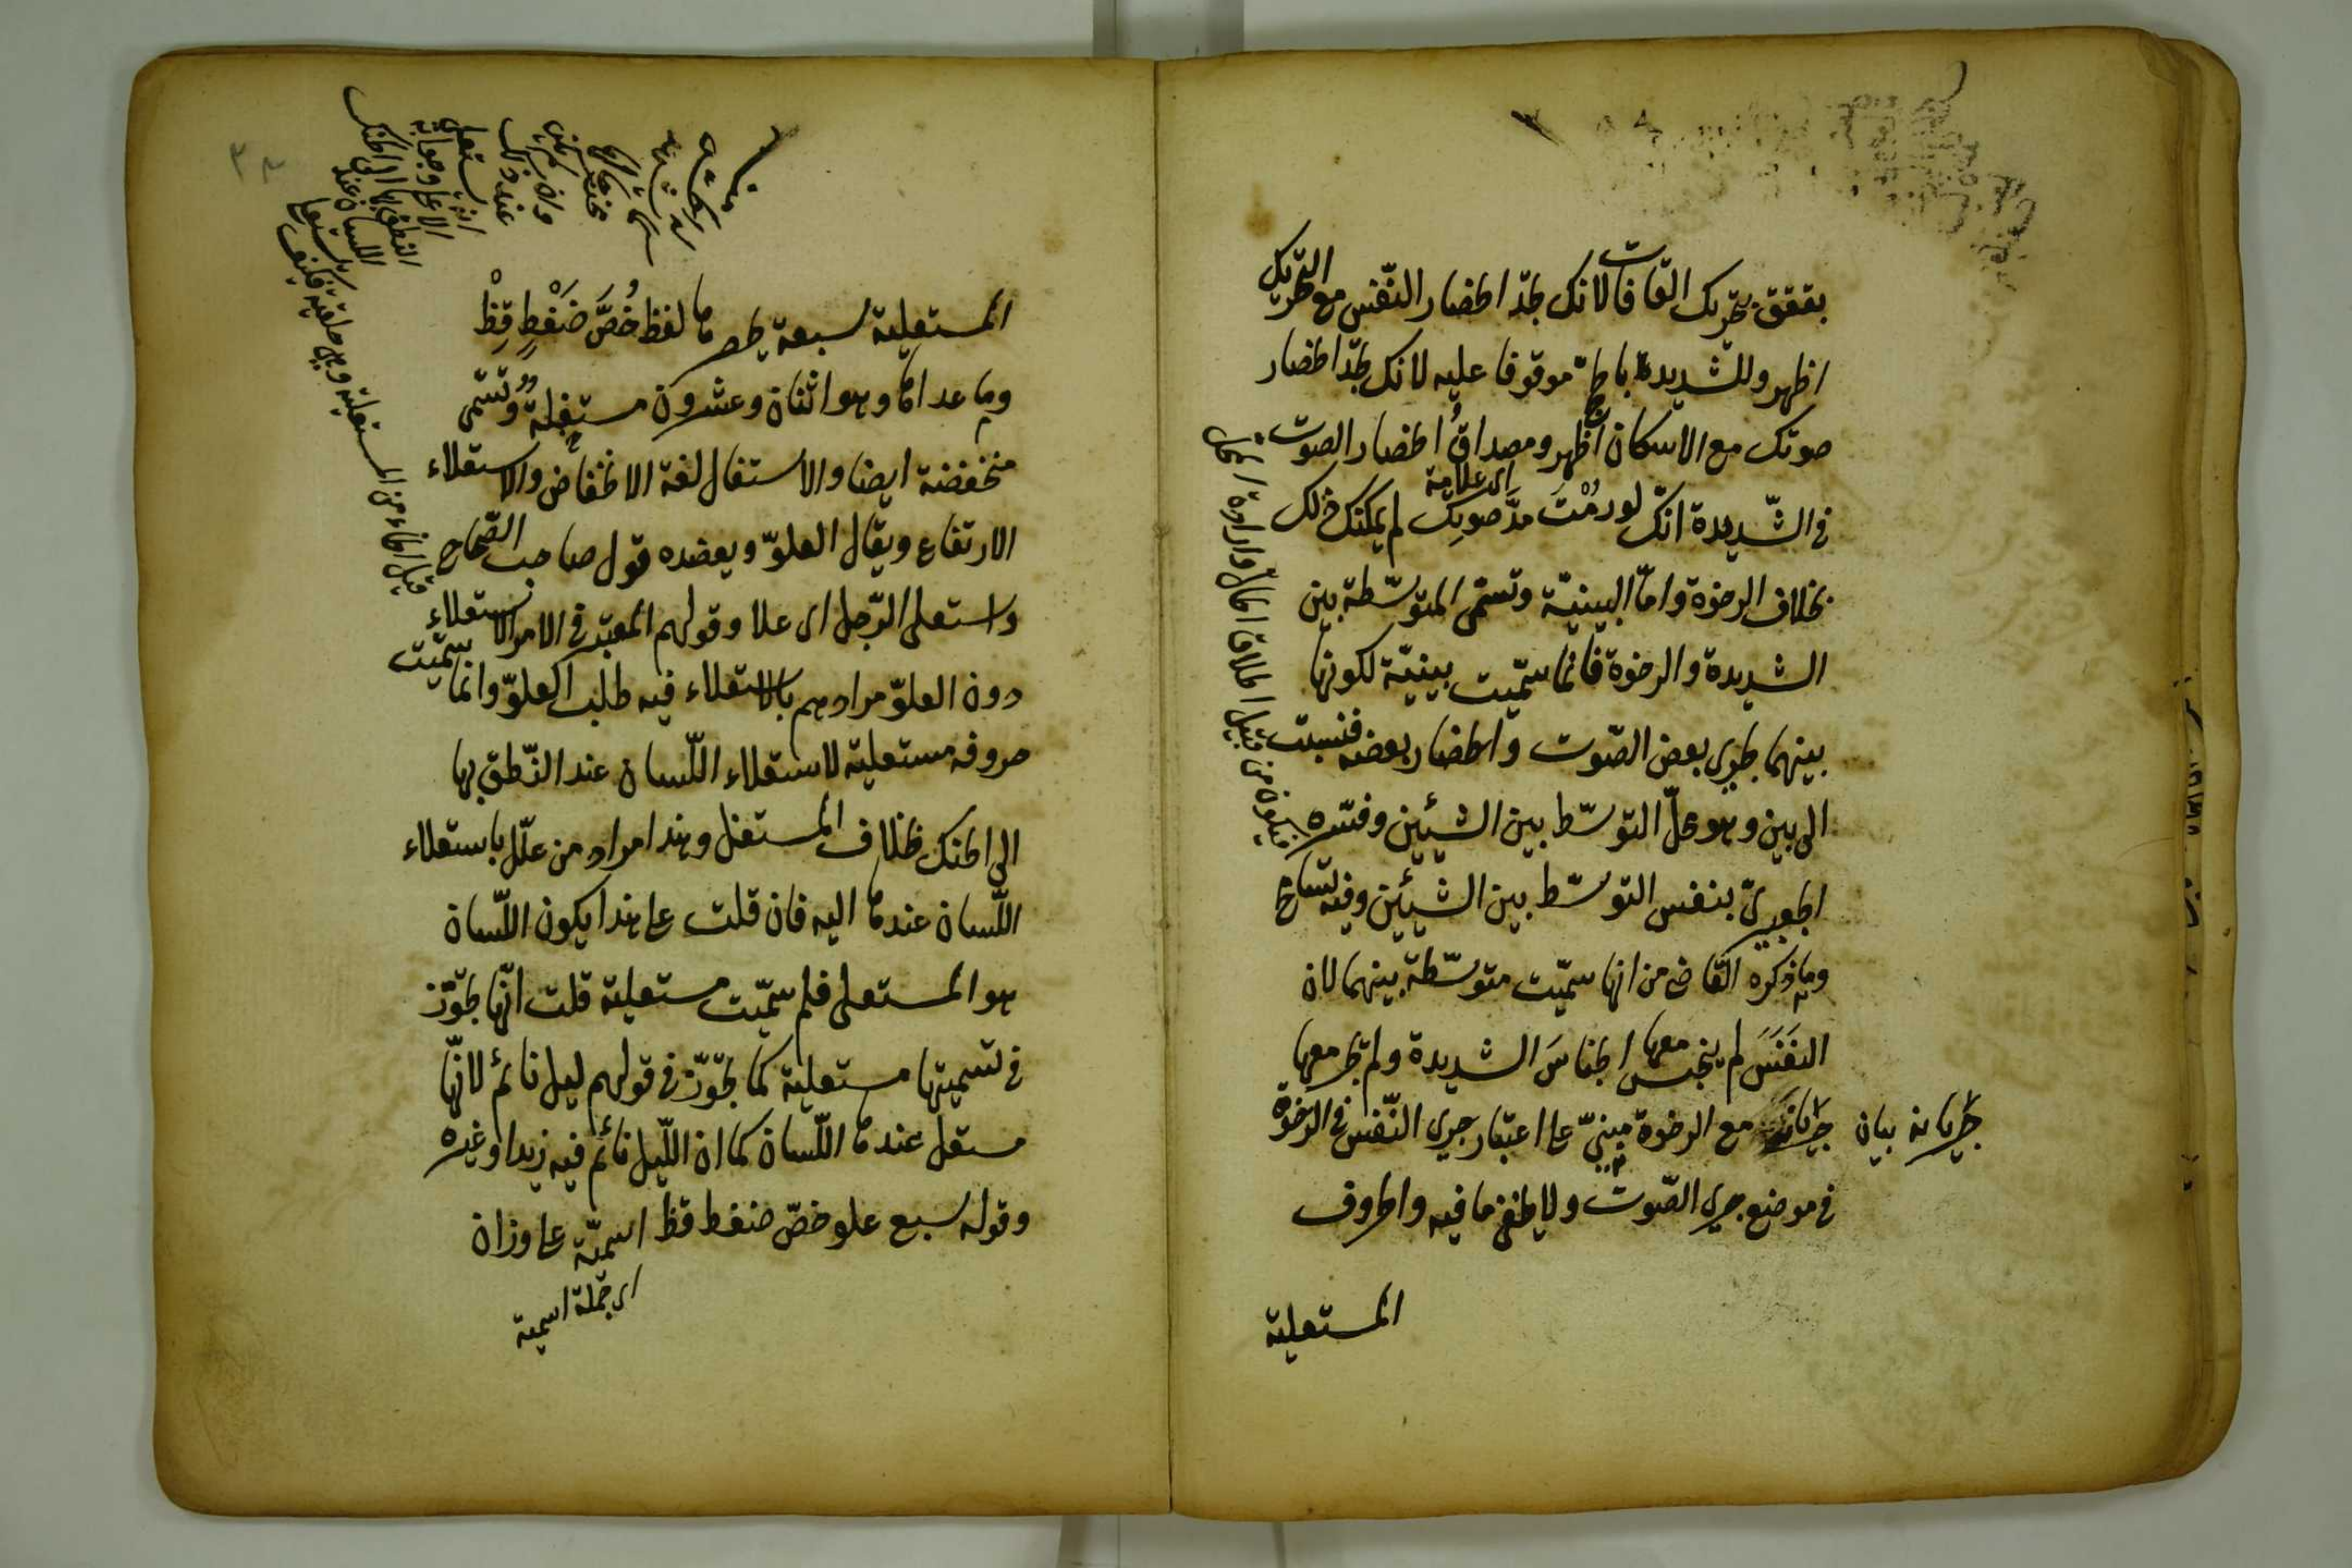 بققق بتحريك القافات لانك تجد انحصار النّفس مع التحريك
اظهر وللشديدة بالحجّ موقوفا عليه لانك تجد انحصار
صوتك مع الاسكان اظهر ومصداقُ انحصار الصوت
اى علامة
فى الشّديدة انّك لو رُمْتَ مدَّ صوتِك لم يمكنك ذلك
بخلاف الرخوة وامّا البينيّة وتسمّى المتوسّطة بين
الشديدة والرخوة فانما سمّيت بينيّة لكونها
بينهما بجرى بعض الصّوت وانحصار بعضه فنسبت
الى بين وهو محلّ التوسّط بين الشيئين وفسّره
الجعبرىّ بنفس التوسّط بين الشيئين وفيه تسامح
وما ذكره القاضى من انها سمّيت متوسّطة بينهما لان
النفَسَ لم ينحبس معها انحباسَ الشديدة ولم يجر معها
جريانه مع الرخوة مبنىّ على اعتبار جرى النّفس فى الرّخوة
جريانه بيان
فى موضع جرى الصّوت ولا يخفى ما فيه والحروف
المستعلية
فيكون من قبيل اطلاق الحالّ وارادة المحلّ
المستعلية سبعة يحصرها لفظ خُصَّ ضَغْطٍ قِظْ
وما عداها وهو اثنان وعشرون مستفلةٌ وتسمّى
منخفضة ايضا والاستفال لغة الانخفاض والاستعلاء
الارتفاع ويقال العلوّ ويعضده قول صاحب الصّحاح
واستعلى الرّجل اى علا وقولهم المعتبر فى الامر الاستعلاء
دون العلوّ مرادهم بالاستعلاء فيه طلب العلوّ وانما سمّيت
حروفه مستعلية لاستعلاء اللّسان عند النّطق بها
الى الحنك بخلاف المستفل وهذا مراد من علّل باستعلاء
اللّسان عندها اليه فان قلت على هذا يكون اللّسان
هو المستعلى فلم سمّيت مستعلية قلت انّها تجوّز
فى تسميتها مستعلية كما تجوّز فى قولهم ليل نائم لانّها
مستعل عندها اللّسان كما ان اللّيل نائم فيه زيد او غيره
وقوله سبع علو خصّ ضغط قظ اسميّة على وزان
اى جملة اسمية
يستعلى
الاعلى
النطق بها الى الحنك
اللسان عند
المستعلية وهى حلقية فكيف